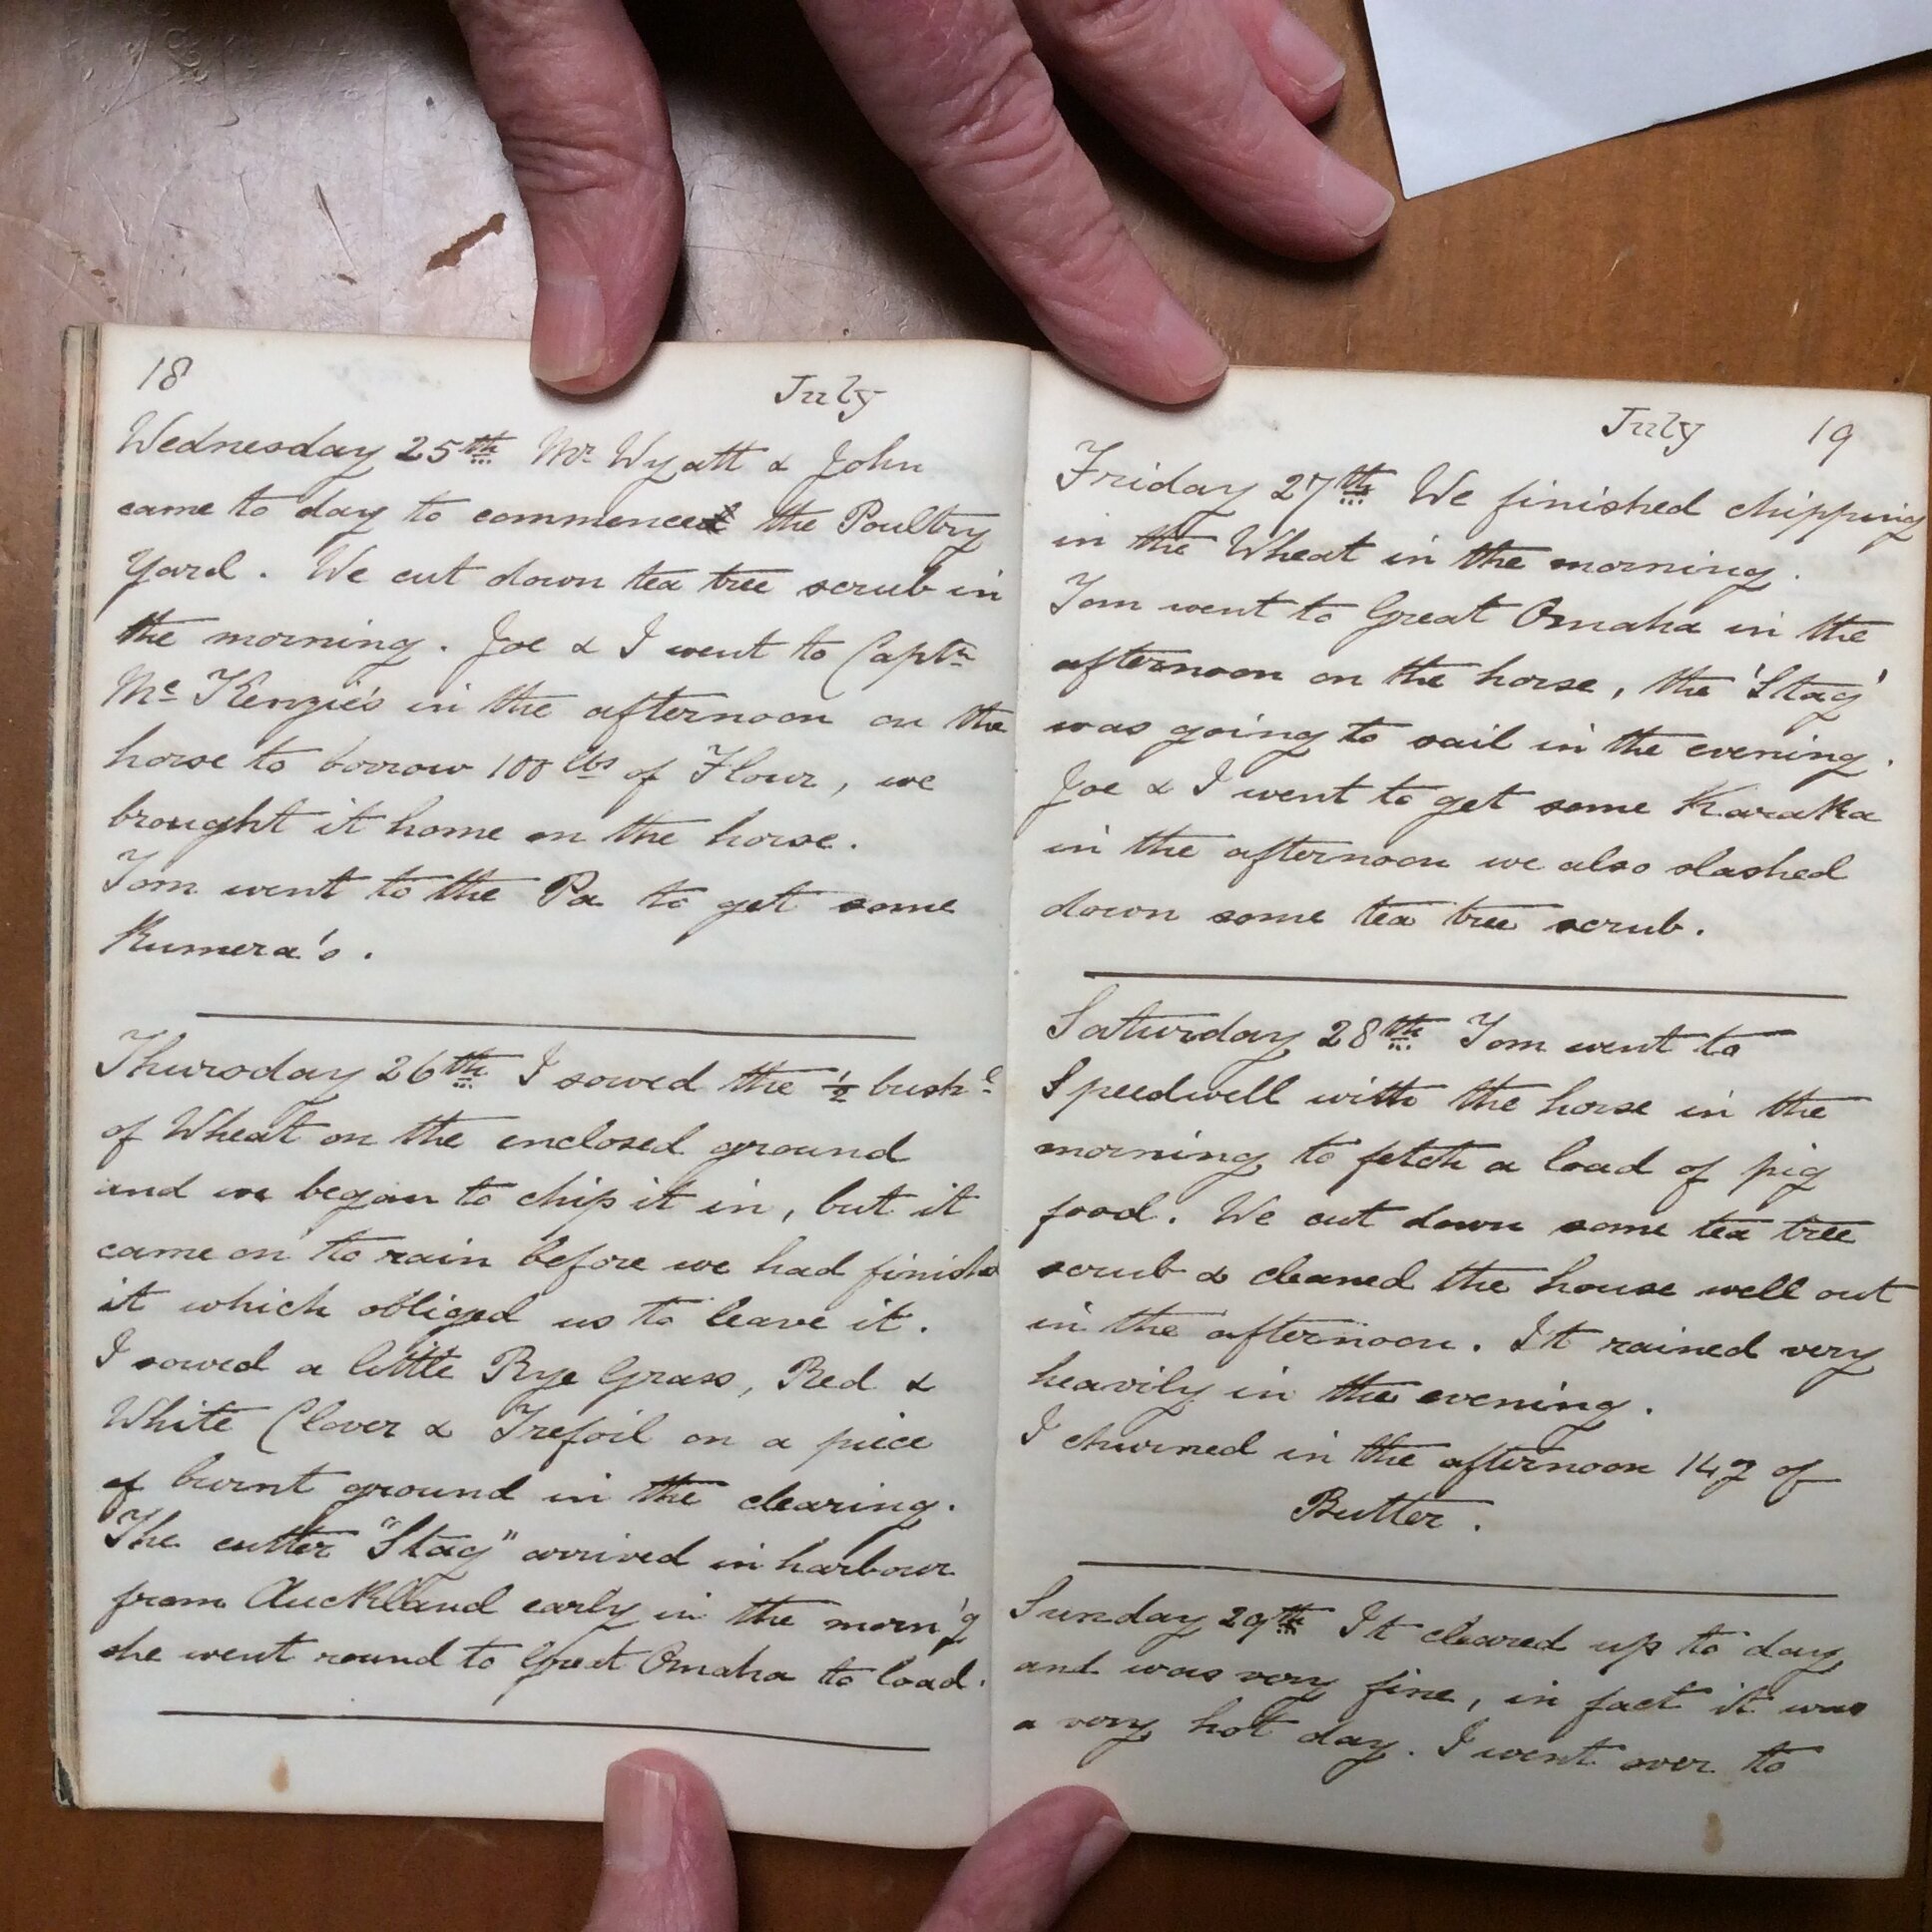 18 July
Wednesday 25th Mr Wyatt & John
came to day to commence the Poultry
Yard. We cut down tea tree scrub in
the morning. Joe & I went to Captn
Mc Kenzie's in the afternoon on the
horse to borrow 100 lbs of Flour, we
brought it home on the horse.
Tom went to the Pa to get some
Kumera's.
Thursday 26th I sowed the 1/2 bushl
of Wheat on the enclosed ground
and we began to chip it in, but it
came on to rain before we had finish
it which obliged us to leave it.
I sowed a little Rye Grass, Red &
White Clover & Trefoil on a piece
of burnt ground in the clearing.
The cutter "Stag" arrived in harbour
from Auckland early in the morn'g
she went round to Great Omaha to load.
July 19
Friday 27th We finished chipping
in the Wheat in the morning.
Tom went to Great Omaha in the
afternoon on the horse, the 'Stag'
was going to sail in the evening.
Joe & I went to get some Karaka
in the afternoon we also slashed
down some tea tree scrub.
Saturday 28th Tom went to
Speedwell with the horse in the
morning to fetch a load of pig
food. We cut down some tea tree
scrub & cleaned the house well out
in the afternoon. It rained very
heavily in the evening.
I churned in the afternoon of
Butter.
Sunday 29th It cleared up to day
and was very fine, in fact it was
a very hot day. I went over to